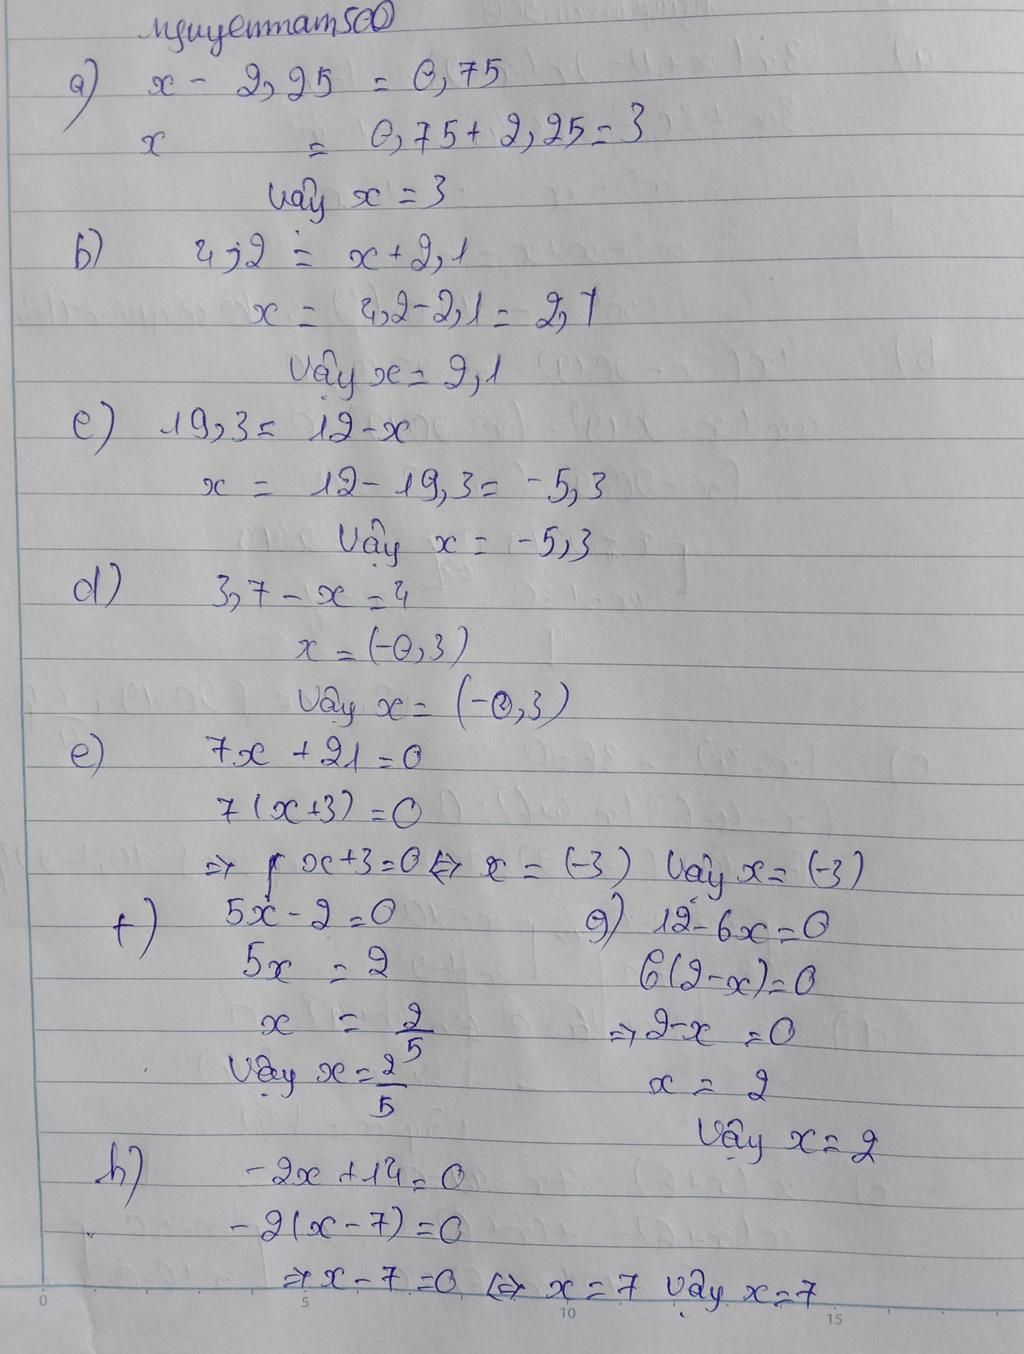 nguyennam500
a) x - 2,25 = 0,75
x = 0,75 + 2,25 = 3
Vậy x = 3
b) 4,2 = x + 2,1
x = 4,2 - 2,1 = 2,1
Vậy x = 2,1
c) 19,3 = 12 - x
x = 12 - 19,3 = -5,3
Vậy x = -5,3
d) 3,7 - x = 4
x = (-0,3)
Vậy x = (-0,3)
e) 7x + 21 = 0
7(x+3) = 0
=> x + 3 = 0 <=> x = (-3) Vậy x = (-3)
f) 5x - 2 = 0
5x = 2
x = 2/5
Vậy x = 2/5
g) 12 - 6x = 0
6(2-x) = 0
=> 2-x = 0
x = 2
Vậy x = 2
h) -2x + 14 = 0
-2(x - 7) = 0
=> x - 7 = 0 <=> x = 7 Vậy x = 7
0 5 10 15